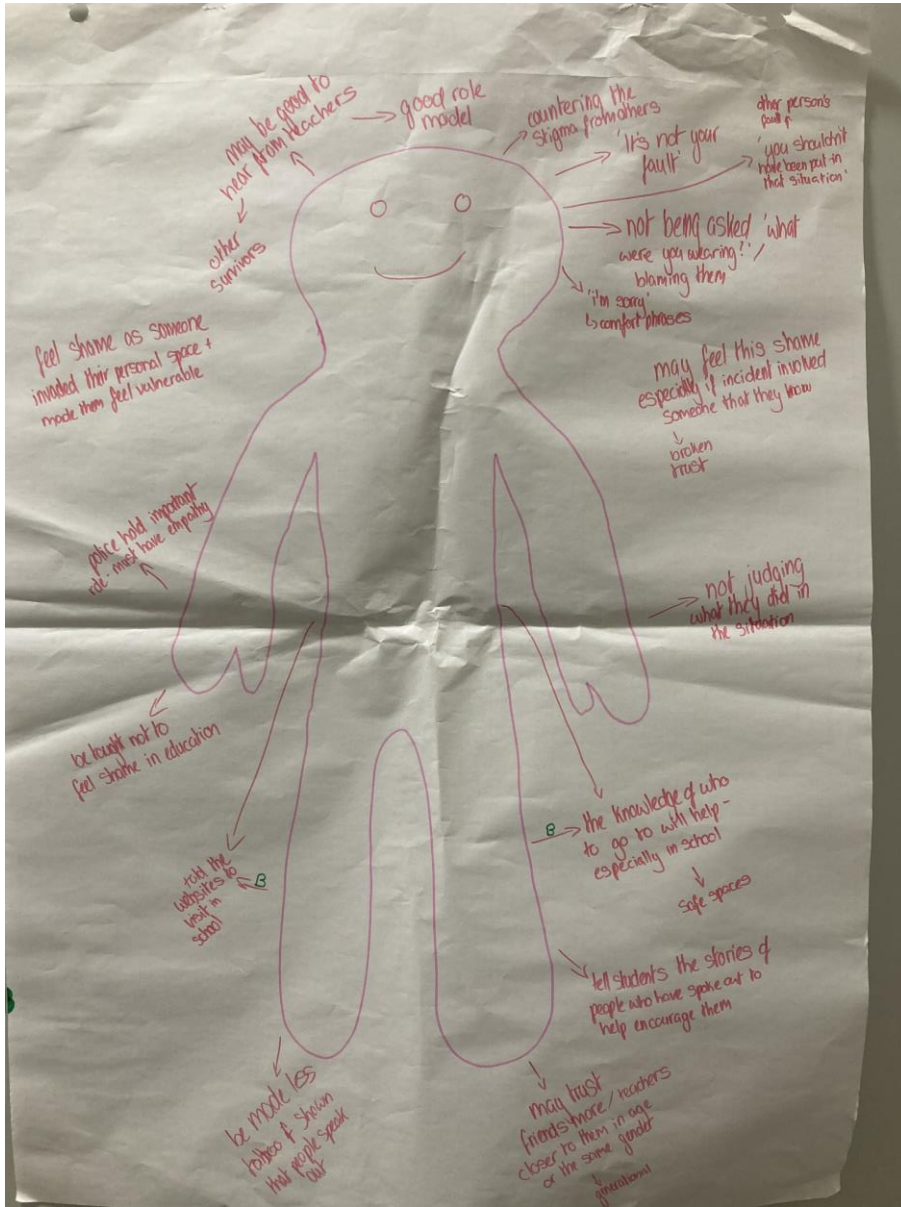 may be good to
hear from teachers
→ good role
model
other
survivors
countering the
stigma from others
'It's not your
fault'
other person's
fault
'you shouldn't
have been put in
that situation'
not being asked 'what
were you wearing?' /
blaming them
'i'm sorry'
↳ comfort phrases
feel shame as someone
invaded their personal space +
made them feel vulnerable
may feel this shame
especially if incident involved
someone that they know
broken
trust
police hold important
role - must have empathy
not judging
what they did in
the situation
be taught not to
feel shame in education
B
the knowledge of who
to go to will help -
especially in school
safe spaces
B
told the
websites to
visit in
school
tell students the stories of
people who have spoke out to
help encourage them
be made less
taboo & shown
that people speak
out
may trust
friends more / teachers
closer to them in age
or the same gender
generational